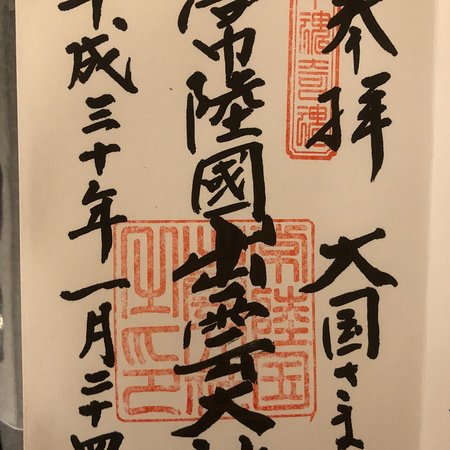 奉拝
大国さま
幸魂奇魂
常陸國出雲大社
常陸国
之印
平成三十年一月二十四